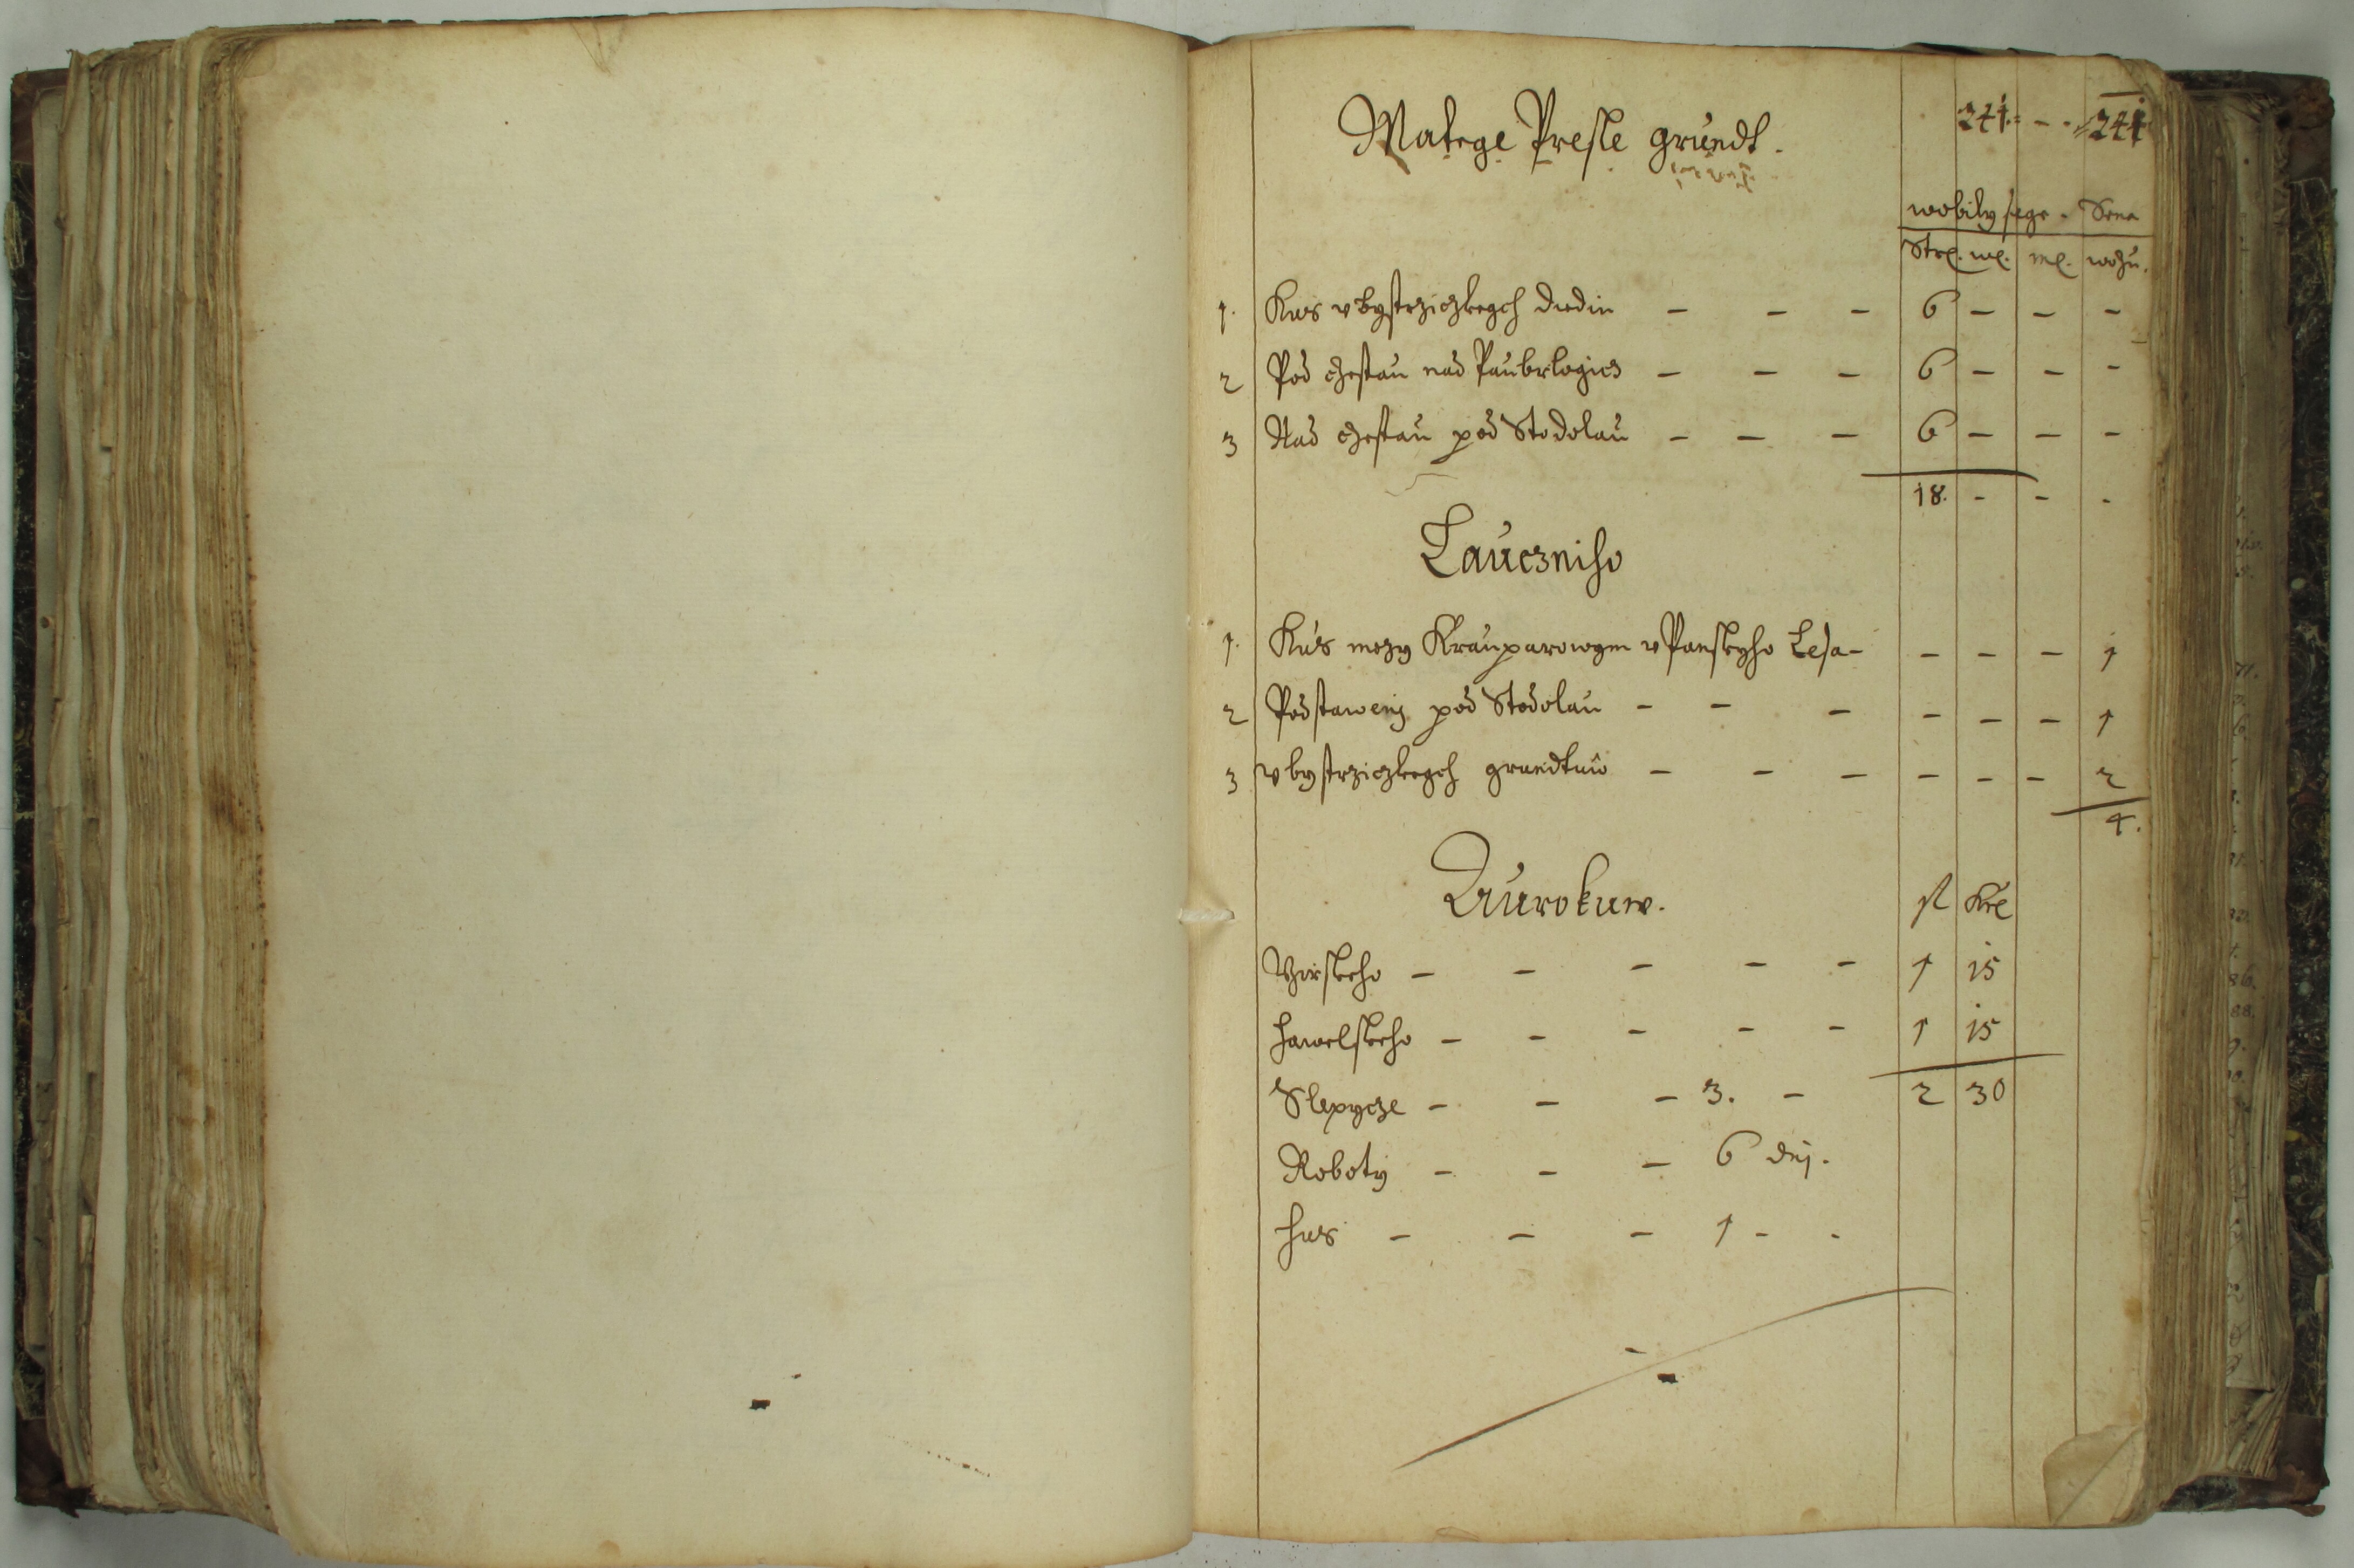 241. - - 241
Matege Presle grundt.
wobily sege - Sena
Strl. wl. ml. wozu.
1. Kus v bystrziczkeych diedin - - - 6 - - -
2 Pod czestau nad Paubrlogics - - - 6 - - -
3 Nad czestau pod Stodolau - - - 6 - - -
18. - - -
Lauczniho
1. Kus mezy Krauparowym v Panskyho Lesa - - - - 1
2 Pod stawenj pod Stodolau - - - - - - 1
3 v bystrziczkeych grundtuw - - - - - - 2
4.
Aurokuw.
fl Krl
Girskeho - - - - - 1 15
Hawelskeho - - - - - 1 15
Slepycze - - - 3. - 2 30
Roboty - - - 6 dnj.
Hus - - - 1 - -